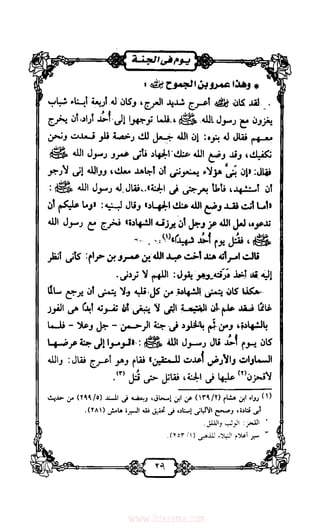 يوم في الجنة
* وهذا عمرو بن الجموح ﷺ :
لقد كان ﷺ أعرج شديد العرج، وكان له أربعة أبناء شباب
يغزون مع رسول الله ﷺ، فلما توجهوا إلى أُحُد أراد أن يخرج
معهم فقال له بنوه: إن الله جعل لك رخصة فلو قعدت ونحن
نكفيك، وقد وضع الله عنك الجهاد. فأتى عمرو رسول الله ﷺ
فقال: «إن بَنيَّ هؤلاء يمنعوني أن أجاهد معك، والله إني لأرجو
أن أستشهد، فأطأ بعرجتي في الجنة»، فقال له رسول الله ﷺ :
«أما أنت فقد وضع الله عنك الجهاد» وقال لبنيه: «وما عليكم أن
تدعوه، لعل الله عز وجل أن يرزقه الشهادة» فخرج مع رسول الله
ﷺ، فقُتل يوم أحد شهيدًا»(١).
قالت امرأته هند أخت عبد الله بن عمرو بن حرام: كأني أنظر
إليه قد أخذ دَرَقته وهو يقول: اللهم لا تردني.
هكذا كان يتمنى الشهادة من كل قلبه ولا يتمنى أن يرجع سالمًا
غانمًا فقد علم أن الغنيمة التي لا ينبغي أن تفوته أبدًا هي الفوز
بالشهادة، ومن ثَم بالخلود في جنة الرحمن - جل وعلا - فلما
كان يوم أُحُد قال رسول الله ﷺ : «قوموا إلى جنة عرضها
السماوات والأرض أعدت للمتقين» فقام وهو أعرج فقال: والله
لأقحزن(٢) عليها في الجنة، فقاتل حتى قُتل(٣).
(١) رواه ابن هشام (١٣٩/٢) عن ابن إسحاق، وبعضه في المسند (٢٩٩/٥) من حديث
أبي قتادة، وصحح الألباني إسناده في تحقيق فقه السيرة هامش (٢٨١).
القحز: الوثب والقلق.
سير أعلام النبلاء للذهبي (٢٥٣/١).
٢٩
www.ibtesama.com